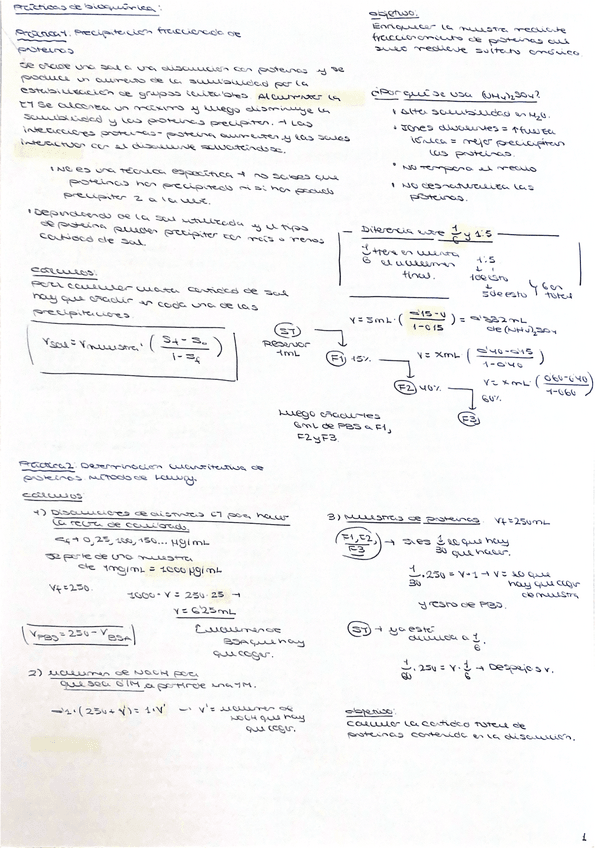 Prácticas de bioquímica:
Práctica 1. Precipitación fraccionada de
proteínas
Se añade una sal a una disolución con proteínas y se
produce un aumento de la solubilidad por la
estabilización de grupos ionizables. Al aumentar la
se alcanza un máximo y luego disminuye la
solubilidad y las proteínas precipitan. → Las
interacciones proteína-proteína aumentan y las sales
interactúan con el disolvente solvatándose.
· No es una técnica específica → no sabemos qué
proteínas han precipitado ni si han podido
precipitar 2 a la vez.
· Dependiendo de la sal utilizada y el tipo
de proteína pueden precipitar con más o menos
cantidad de sal.
Cálculos:
Para calcular cuánta cantidad de sal
hay que añadir en cada una de las
precipitaciones
Vsal = Vmuestra · (Sf - So / 1 - Sf)
Objetivo:
Enriquecer la muestra mediante
fraccionamiento de proteínas del
suero mediante sulfato amónico
¿Por qué se usa (NH4)2SO4?
· Alta solubilidad en H2O.
· Iones divalentes = ↑ fuerza
iónica = mejor precipitan
las proteínas.
· No tampona el medio
· No desnaturaliza las
proteínas.
Diferencia entre 1/6 y 1:5
1/6 tiene en cuenta
el volumen
final.
1:5
1 de esto
5 de esto
y 6 en
total
ST
Reservar
1mL
V = 5mL · (0'15 - 0 / 1 - 0'15) = 0'882 mL
de (NH4)2SO4
F1 15%
V = XmL · (0'40 - 0'15 / 1 - 0'40)
F2 40%
V = XmL · (0'60 - 0'40 / 1 - 0'60)
60%
F3
Luego añadimos
6mL de PBS a F1,
F2 y F3.
Práctica 2. Determinación cuantitativa de
proteínas método de Lowry.
Cálculos
1) Disoluciones de distintas para hacer
la recta de calibrado.
0, 25, 100, 150... µg/mL
Se parte de una muestra
de 1mg/mL = 1000 µg/mL
Vf = 250.
1000 · V = 250 · 25 →
V = 6'25 mL
VPBS = 250 - VBSA
Volumen de
BSA que hay
que coger.
2) Volumen de NaOH para
que sea 0'1M a partir de una 1M.
→ 1 · (250 + V') = 1 · V' → V' = volumen de
NaOH que hay
que coger.
3) Muestras de proteínas Vf = 250 mL
F1, F2,
F3
→ 1/30 lo que hay
que hacer.
1/30 · 250 = V · 1 → V = lo que
hay que coger
de muestra
y resto de PBS.
ST → ya está
diluida a 1/6.
1/60 · 250 = V · 1/6 → Despejas V.
Objetivo:
Calcular la cantidad total de
proteínas contenida en la disolución.
1